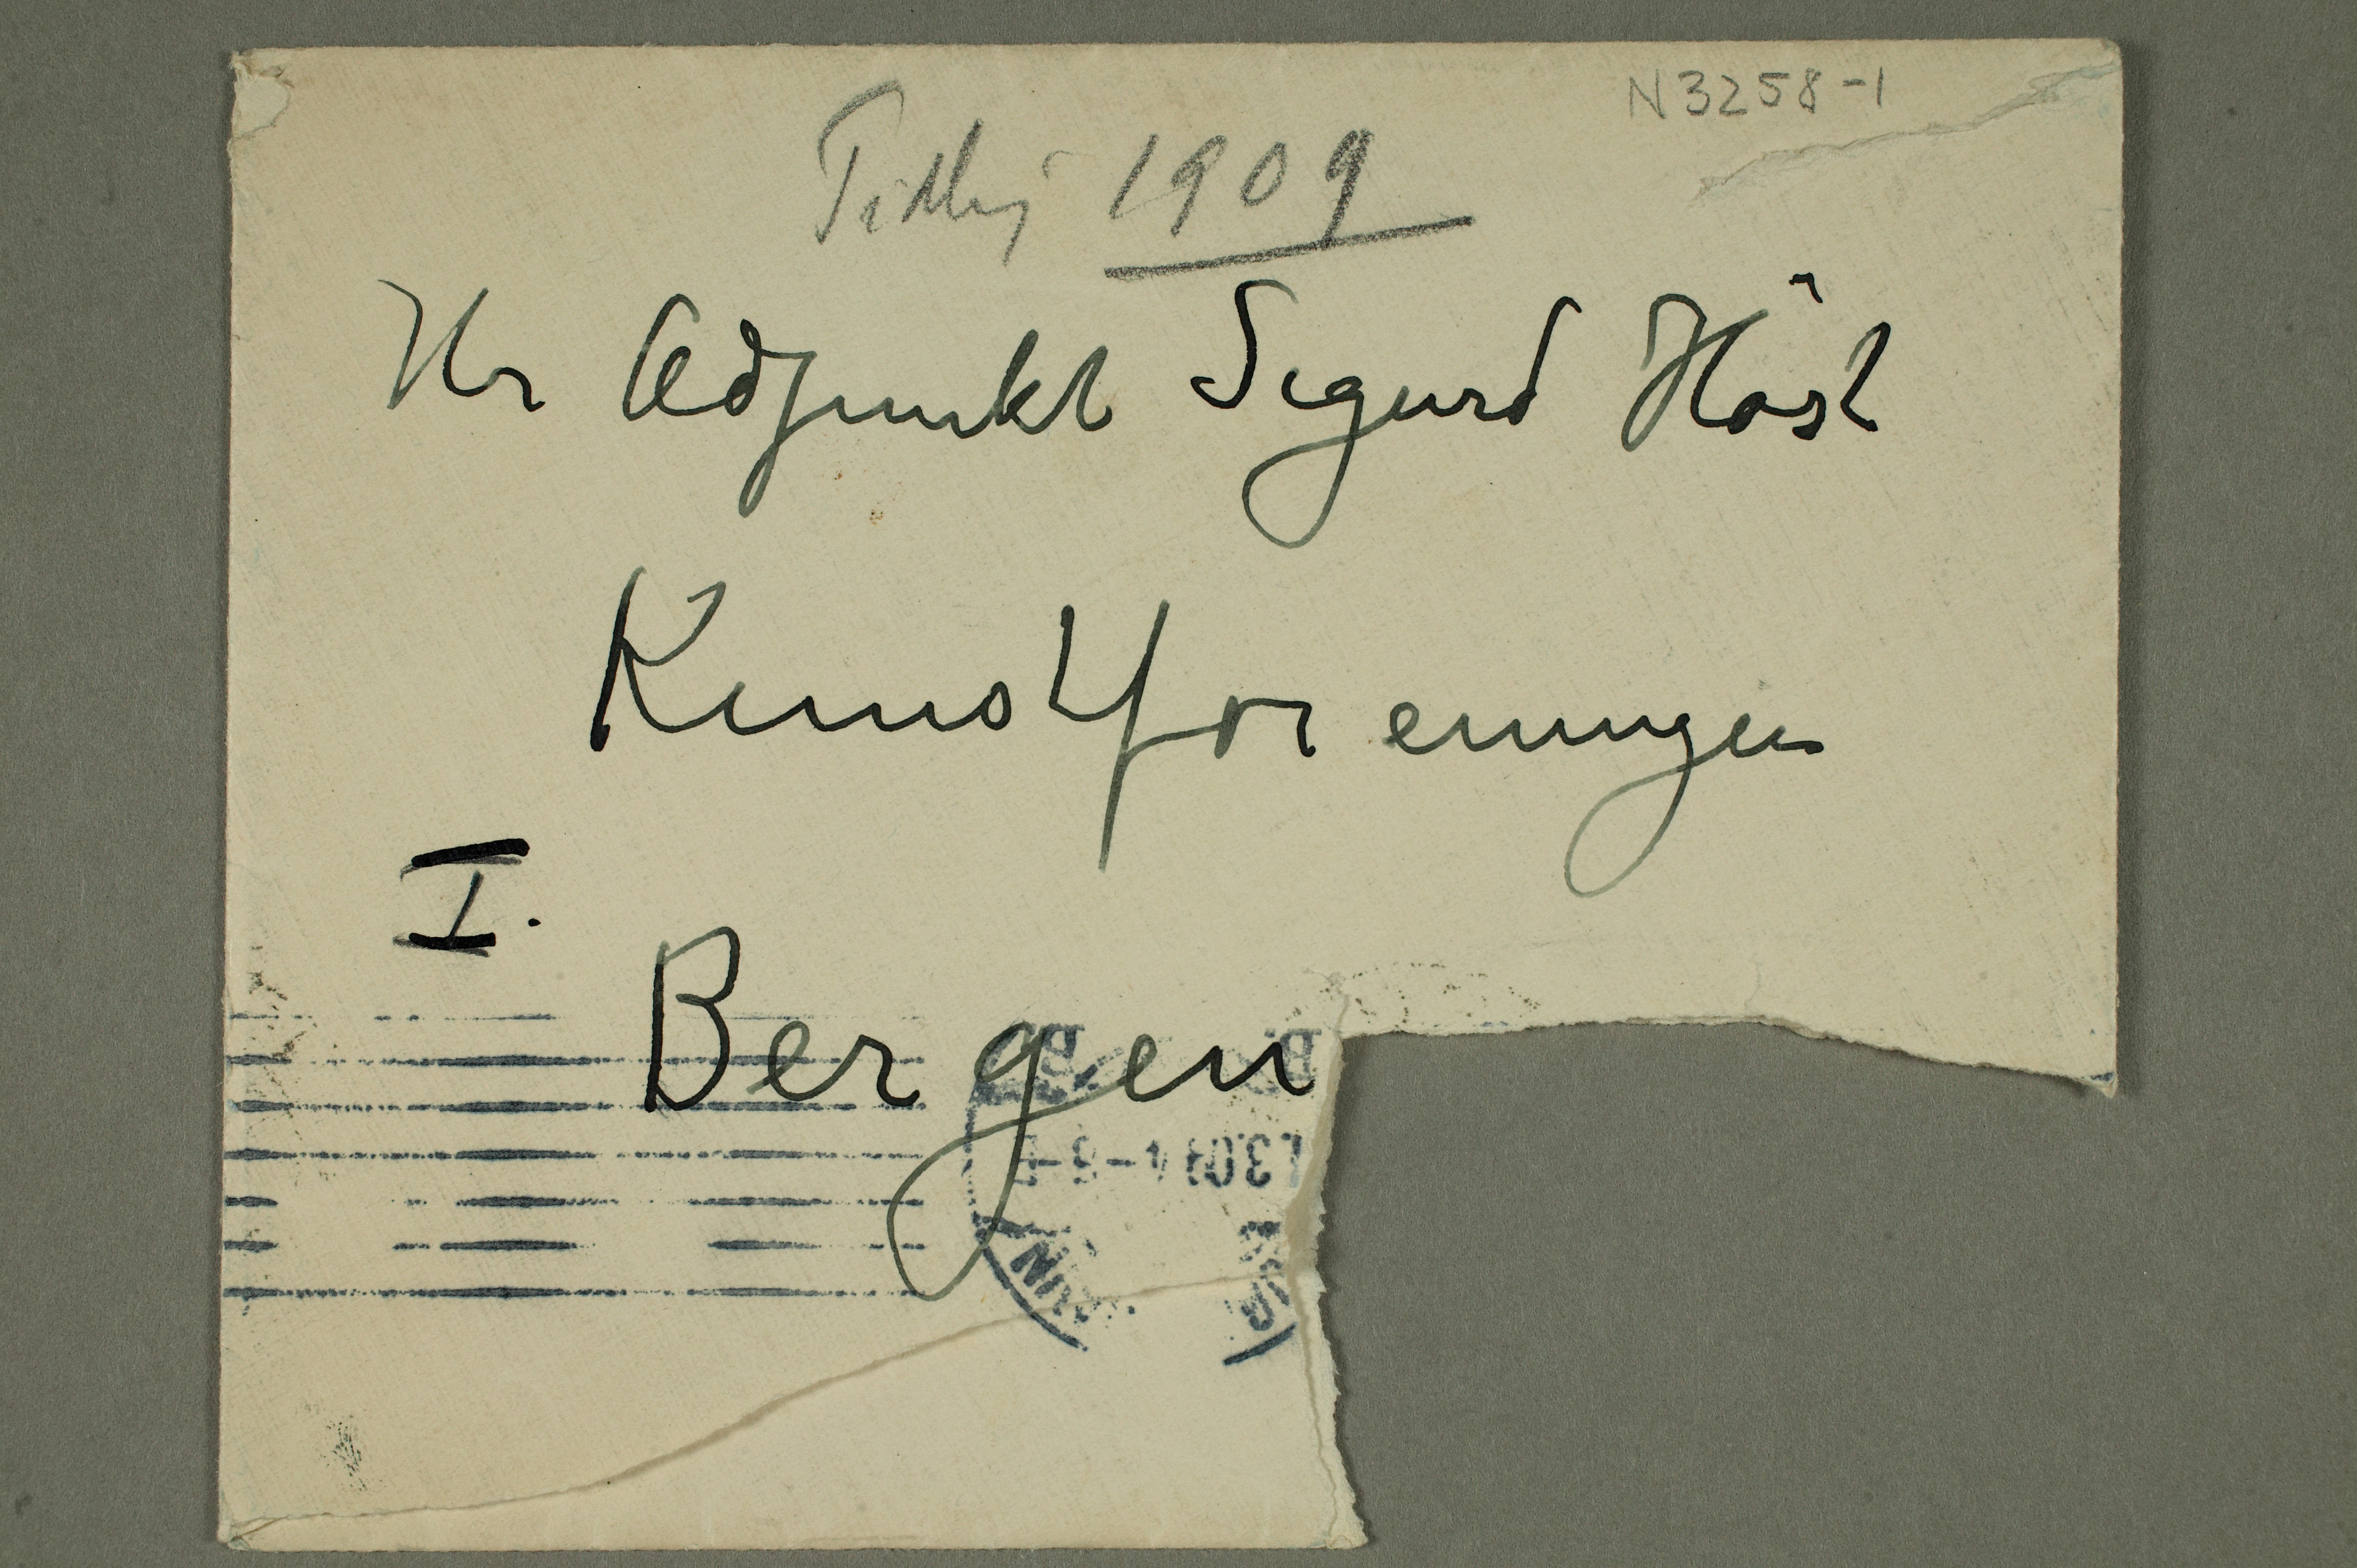 N3258-1
Tidlig 1909
Hr Adjunkt Sigurd Höst
Kunstforeningen
I.
Bergen